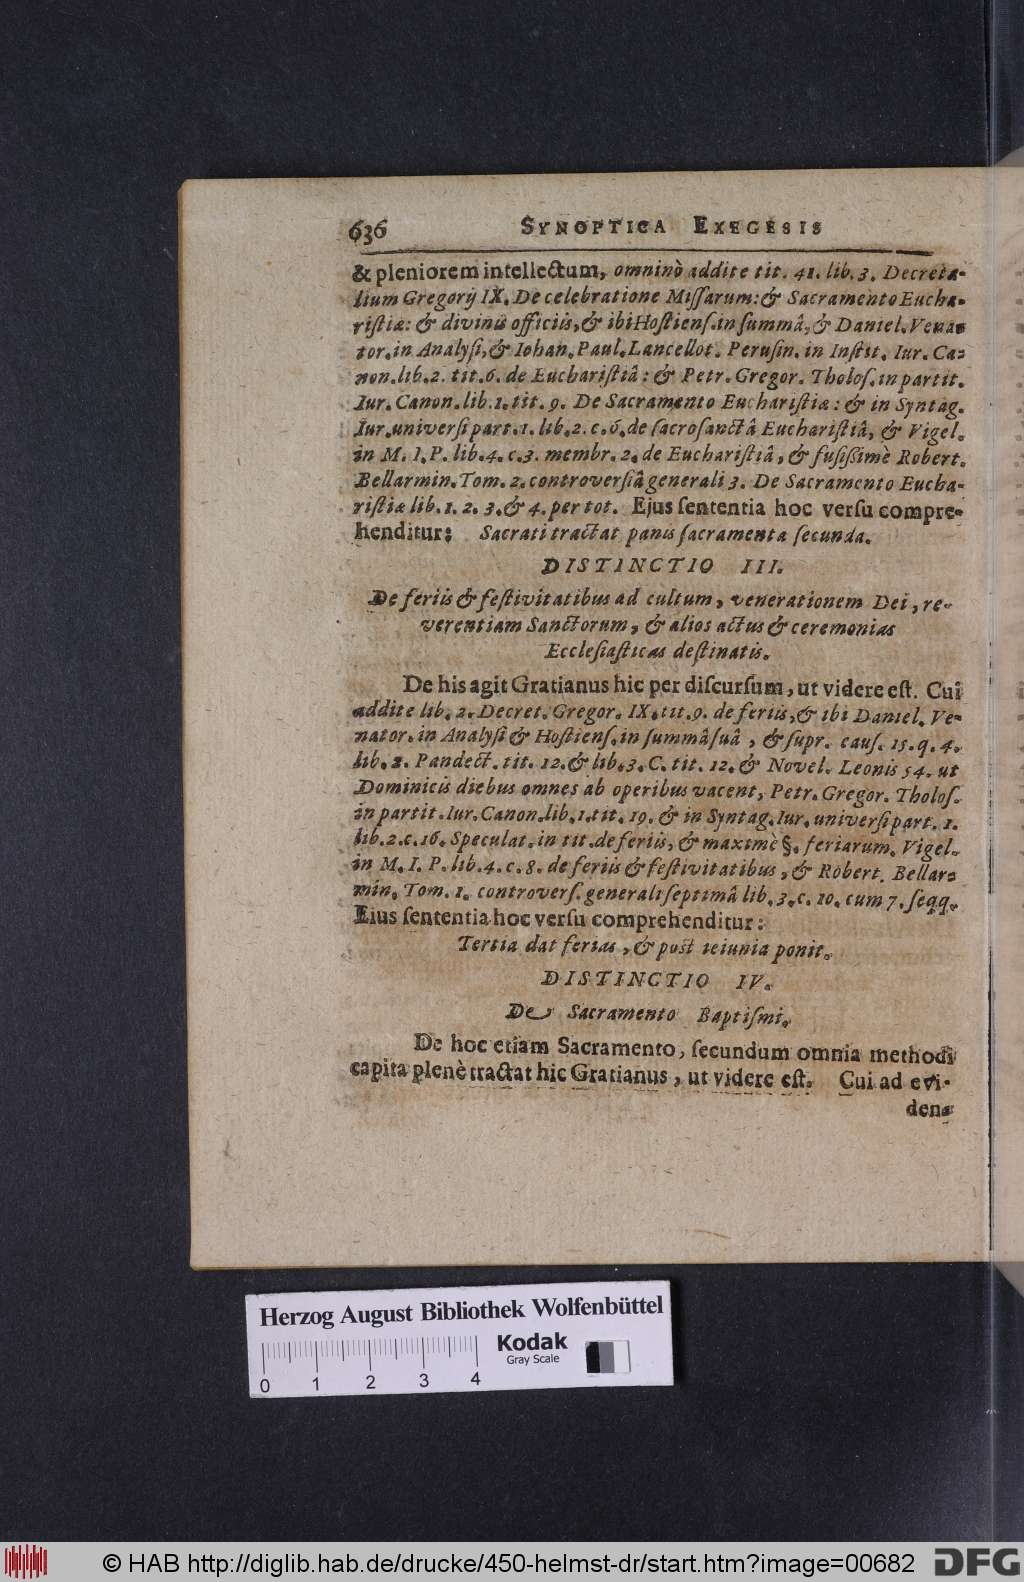 636 SYNOPTICA EXEGESIS
& pleniorem intellectum, omninò addite tit. 41. lib. 3. Decreta-
lium Gregorij IX. De celebratione Missarum: & Sacramento Eucha-
ristiæ: & divinis officiis, & ibi Hostiens. in summâ, & Daniel. Vena-
tor. in Analysi, & Iohan. Paul. Lancellot. Perusin. in Instit. Iur. Ca-
non. lib. 2. tit. 6. de Eucharistiâ: & Petr. Gregor. Tholos. in partit.
Iur. Canon. lib. 1. tit. 9. De Sacramento Eucharistiæ: & in Syntag.
Iur. universi part. 1. lib. 2. c. 6. de sacrosanctâ Eucharistiâ, & Vigel.
in M. I. P. lib. 4. c. 3. membr. 2. de Eucharistiâ, & fusißimè Robert.
Bellarmin. Tom. 2. controversiâ generali 3. De Sacramento Eucha-
ristiæ lib. 1. 2. 3. & 4. per tot. Ejus sententia hoc versu compre-
henditur: Sacrati tractat panis sacramenta secunda.
DISTINCTIO III.
De feriis & festivitatibus ad cultum, venerationem Dei, re-
verentiam Sanctorum, & alios actus & ceremonias
Ecclesiasticas destinatis.
De his agit Gratianus hic per discursum, ut videre est. Cui
addite lib. 2. Decret. Gregor. IX. tit. 9. de feriis, & ibi Daniel. Ve-
nator. in Analysi & Hostiens. in summâ suâ, & supr. caus. 15. q. 4.
lib. 2. Pandect. tit. 12. & lib. 3. C. tit. 12. & Novel. Leonis 54. ut
Dominicis diebus omnes ab operibus vacent, Petr. Gregor. Tholos.
in partit. Iur. Canon. lib. 1. tit. 19. & in Syntag. Iur. universi part. 1.
lib. 2. c. 16. Speculat. in tit. de feriis, & maximè §. feriarum. Vigel.
in M. I. P. lib. 4. c. 8. de feriis & festivitatibus, & Robert. Bellar-
min. Tom. 1. controvers. generali septimâ lib. 3. c. 10. cum 7. seqq.
Eius sententia hoc versu comprehenditur:
Tertia dat ferias, & post ieiunia ponit.
DISTINCTIO IV.
De Sacramento Baptismi.
De hoc etiam Sacramento, secundum omnia methodi
capita plenè tractat hic Gratianus, ut videre est. Cui ad evi-
den-
Herzog August Bibliothek Wolfenbüttel
Kodak
Gray Scale
0 1 2 3 4
© HAB http://diglib.hab.de/drucke/450-helmst-dr/start.htm?image=00682 DFG